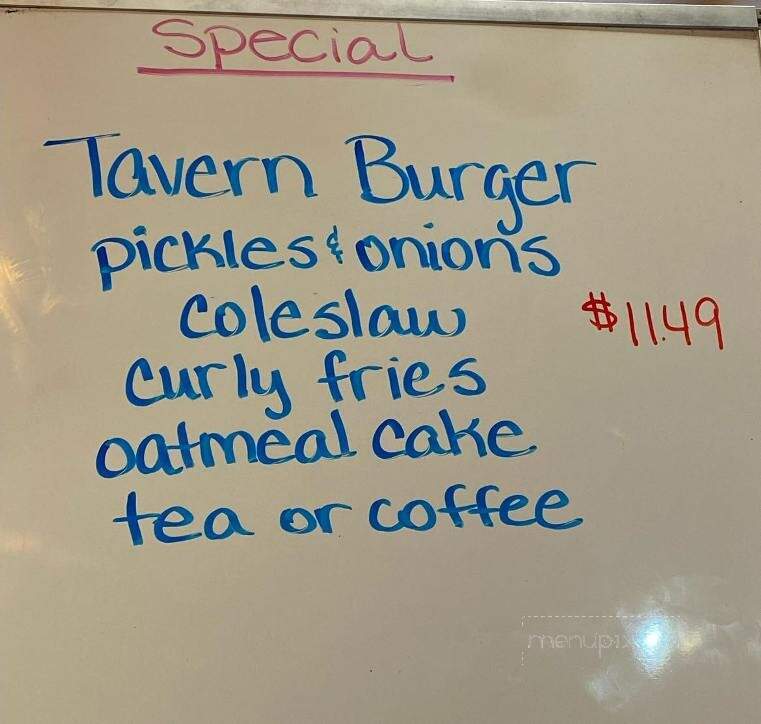 Special
Tavern Burger
pickles & onions
coleslaw
$11.49
curly fries
oatmeal cake
tea or coffee